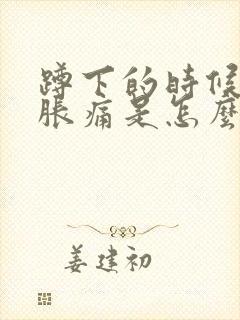 蹲下的時候
脹痛是怎麼
姜建初